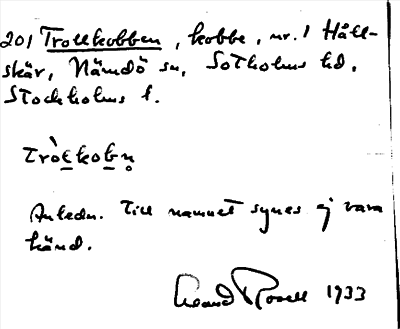 201 Trollkobben, kobbe, nr. 1 Håll-
skär, Nämdö sn, Sotholms hd,
Stockholms l.
Tròłkobn̥
Anledn. till namnet synes ej vara
känd.
Rosell 1933